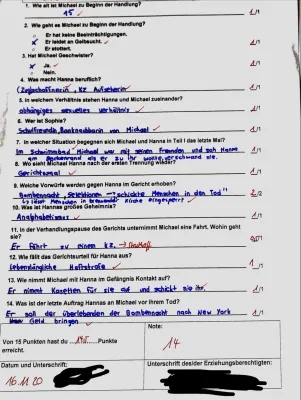 1. Wie alt ist Michael zu Beginn der Handlung?
15 1/1
2. Wie geht es Michael zu Beginn der Handlung?
Er hat keine Beeinträchtigungen.
x Er leidet an Gelbsucht. 1/1
Er stottert.
3. Hat Michael Geschwister?
x Ja. 1/1
Nein.
4. Was macht Hanna beruflich?
(Zugschaffnerin, KZ Aufseherin 1/1
5. In welchem Verhältnis stehen Hanna und Michael zueinander?
abhängiges sexuelles Verhältnis 1/1
6. Wer ist Sophie?
Schulfreundin, Banknachbarin von Michael 1/1
7. In welcher Situation begegnen sich Michael und Hanna in Teil I das letzte Mal?
Im Schwimmbad Michael war mit seinen Freunden und sah Hanna
am Beckenrand als er zu ihr wollte verschwand sie. 1/1
8. Wo sieht Michael Hanna nach der ersten Trennung wieder?
Gerichtssaal 1/1
9. Welche Vorwürfe werden gegen Hanna im Gericht erhoben?
Bombennacht, Selektionen → "schickte Menschen in den Tod"
↳ lässt Menschen in brennender Kirche eingesperrt
10. Was ist Hannas großes Geheimnis?
Analphabetismus 1/1
11. In der Verhandlungspause des Gerichts unternimmt Michael eine Fahrt. Wohin geht
sie?
Er fährt zu einem KZ.
12. Wie fällt das Gerichtsurteil für Hanna aus?
Lebenslängliche Haftstrafe 1/1
13. Wie nimmt Michael mit Hanna im Gefängnis Kontakt auf?
Er nimmt Kasetten für sie auf und schickt sie ihr. 1/1
14. Was ist der letzte Auftrag Hannas an Michael vor ihrem Tod?
Er soll der überlebenden der Bombennacht nach New York
Geld bringen 1/1
Von 15 Punkten hast du Punkte
erreicht.
Note:
14
Datum und Unterschrift:
16.11.20
Unterschrift des/der Erziehungsberechtigten: